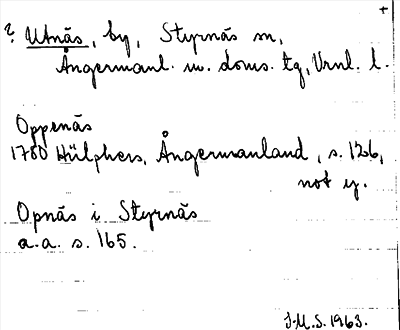 +
? Utnäs, by, Styrnäs sn,
Ångermanl. m. doms. tg, Vrnl. l.
Oppenäs
1780 Hülphers, Ångermanland, s. 126,
not y.
Opnäs i Styrnäs
a.a. s. 165.
J.M.S. 1963.